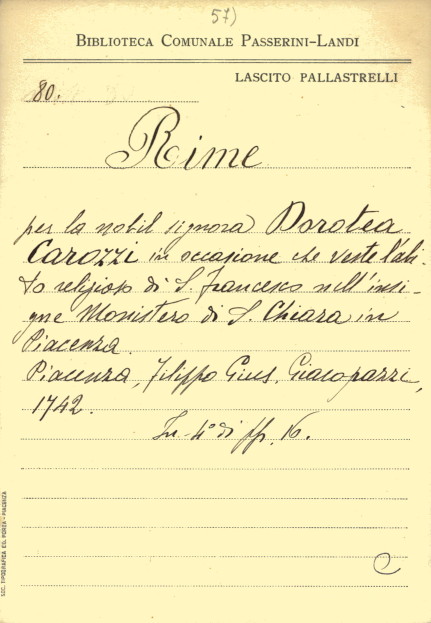 57)
BIBLIOTECA COMUNALE PASSERINI-LANDI
LASCITO PALLASTRELLI
80.
Rime
per la nobil signora Dorotea
Carozzi in occasione che veste l'abi-
to religioso di S. Francesco nell'insi-
gne Monistero di S. Chiara in
Piacenza.
Piacenza, Filippo Gius. Giacopazzi,
1742.
In-4° di ff. 16.
C
SOC. TIPOGRAFICA ED. PORTA - PIACENZA